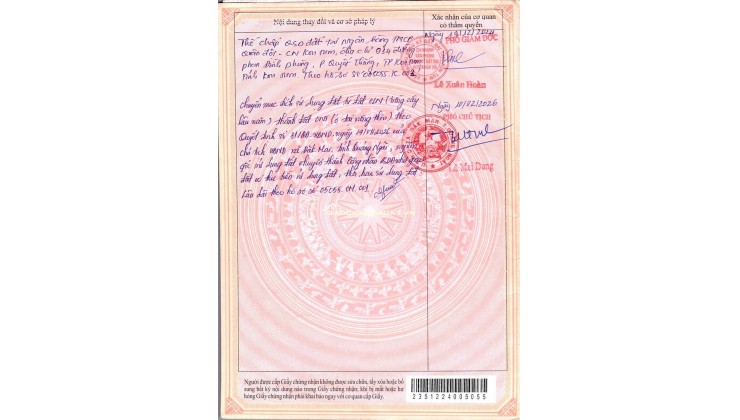 Nội dung thay đổi và cơ sở pháp lý
Xác nhận của cơ quan
có thẩm quyền
Thế chấp QSD đất tại Ngân hàng TMCP
Quân đội - CN Kon Tum, địa chỉ
Phan Đình Phùng, P Quyết Thắng, TP Kon Tum,
Tỉnh Kon Tum. Theo hồ sơ số
Ngày 19/12/2024
PHÓ GIÁM ĐỐC
Lê Xuân Hoàn
Chuyển mục đích sử dụng đất từ đất CLN (trồng cây
lâu năm) thành đất ONT (ở tại nông thôn) theo
Quyết định số UBND, ngày
chủ tịch UBND xã Đăk Mar, tỉnh Quảng Ngãi, nguồn
gốc sử dụng đất chuyển thành công nhận QSDĐ như giao
đất có thu tiền sử dụng đất, thời hạn sử dụng đất
Lâu dài theo hồ sơ số
Ngày 10/02/2026
PHÓ CHỦ TỊCH
Lê Mai Dung
Người được cấp Giấy chứng nhận không được sửa chữa, tẩy xóa hoặc bổ
sung bất kỳ nội dung nào trong Giấy chứng nhận; khi bị mất hoặc hư
hỏng Giấy chứng nhận phải khai báo ngay với cơ quan cấp Giấy.
2351224005055